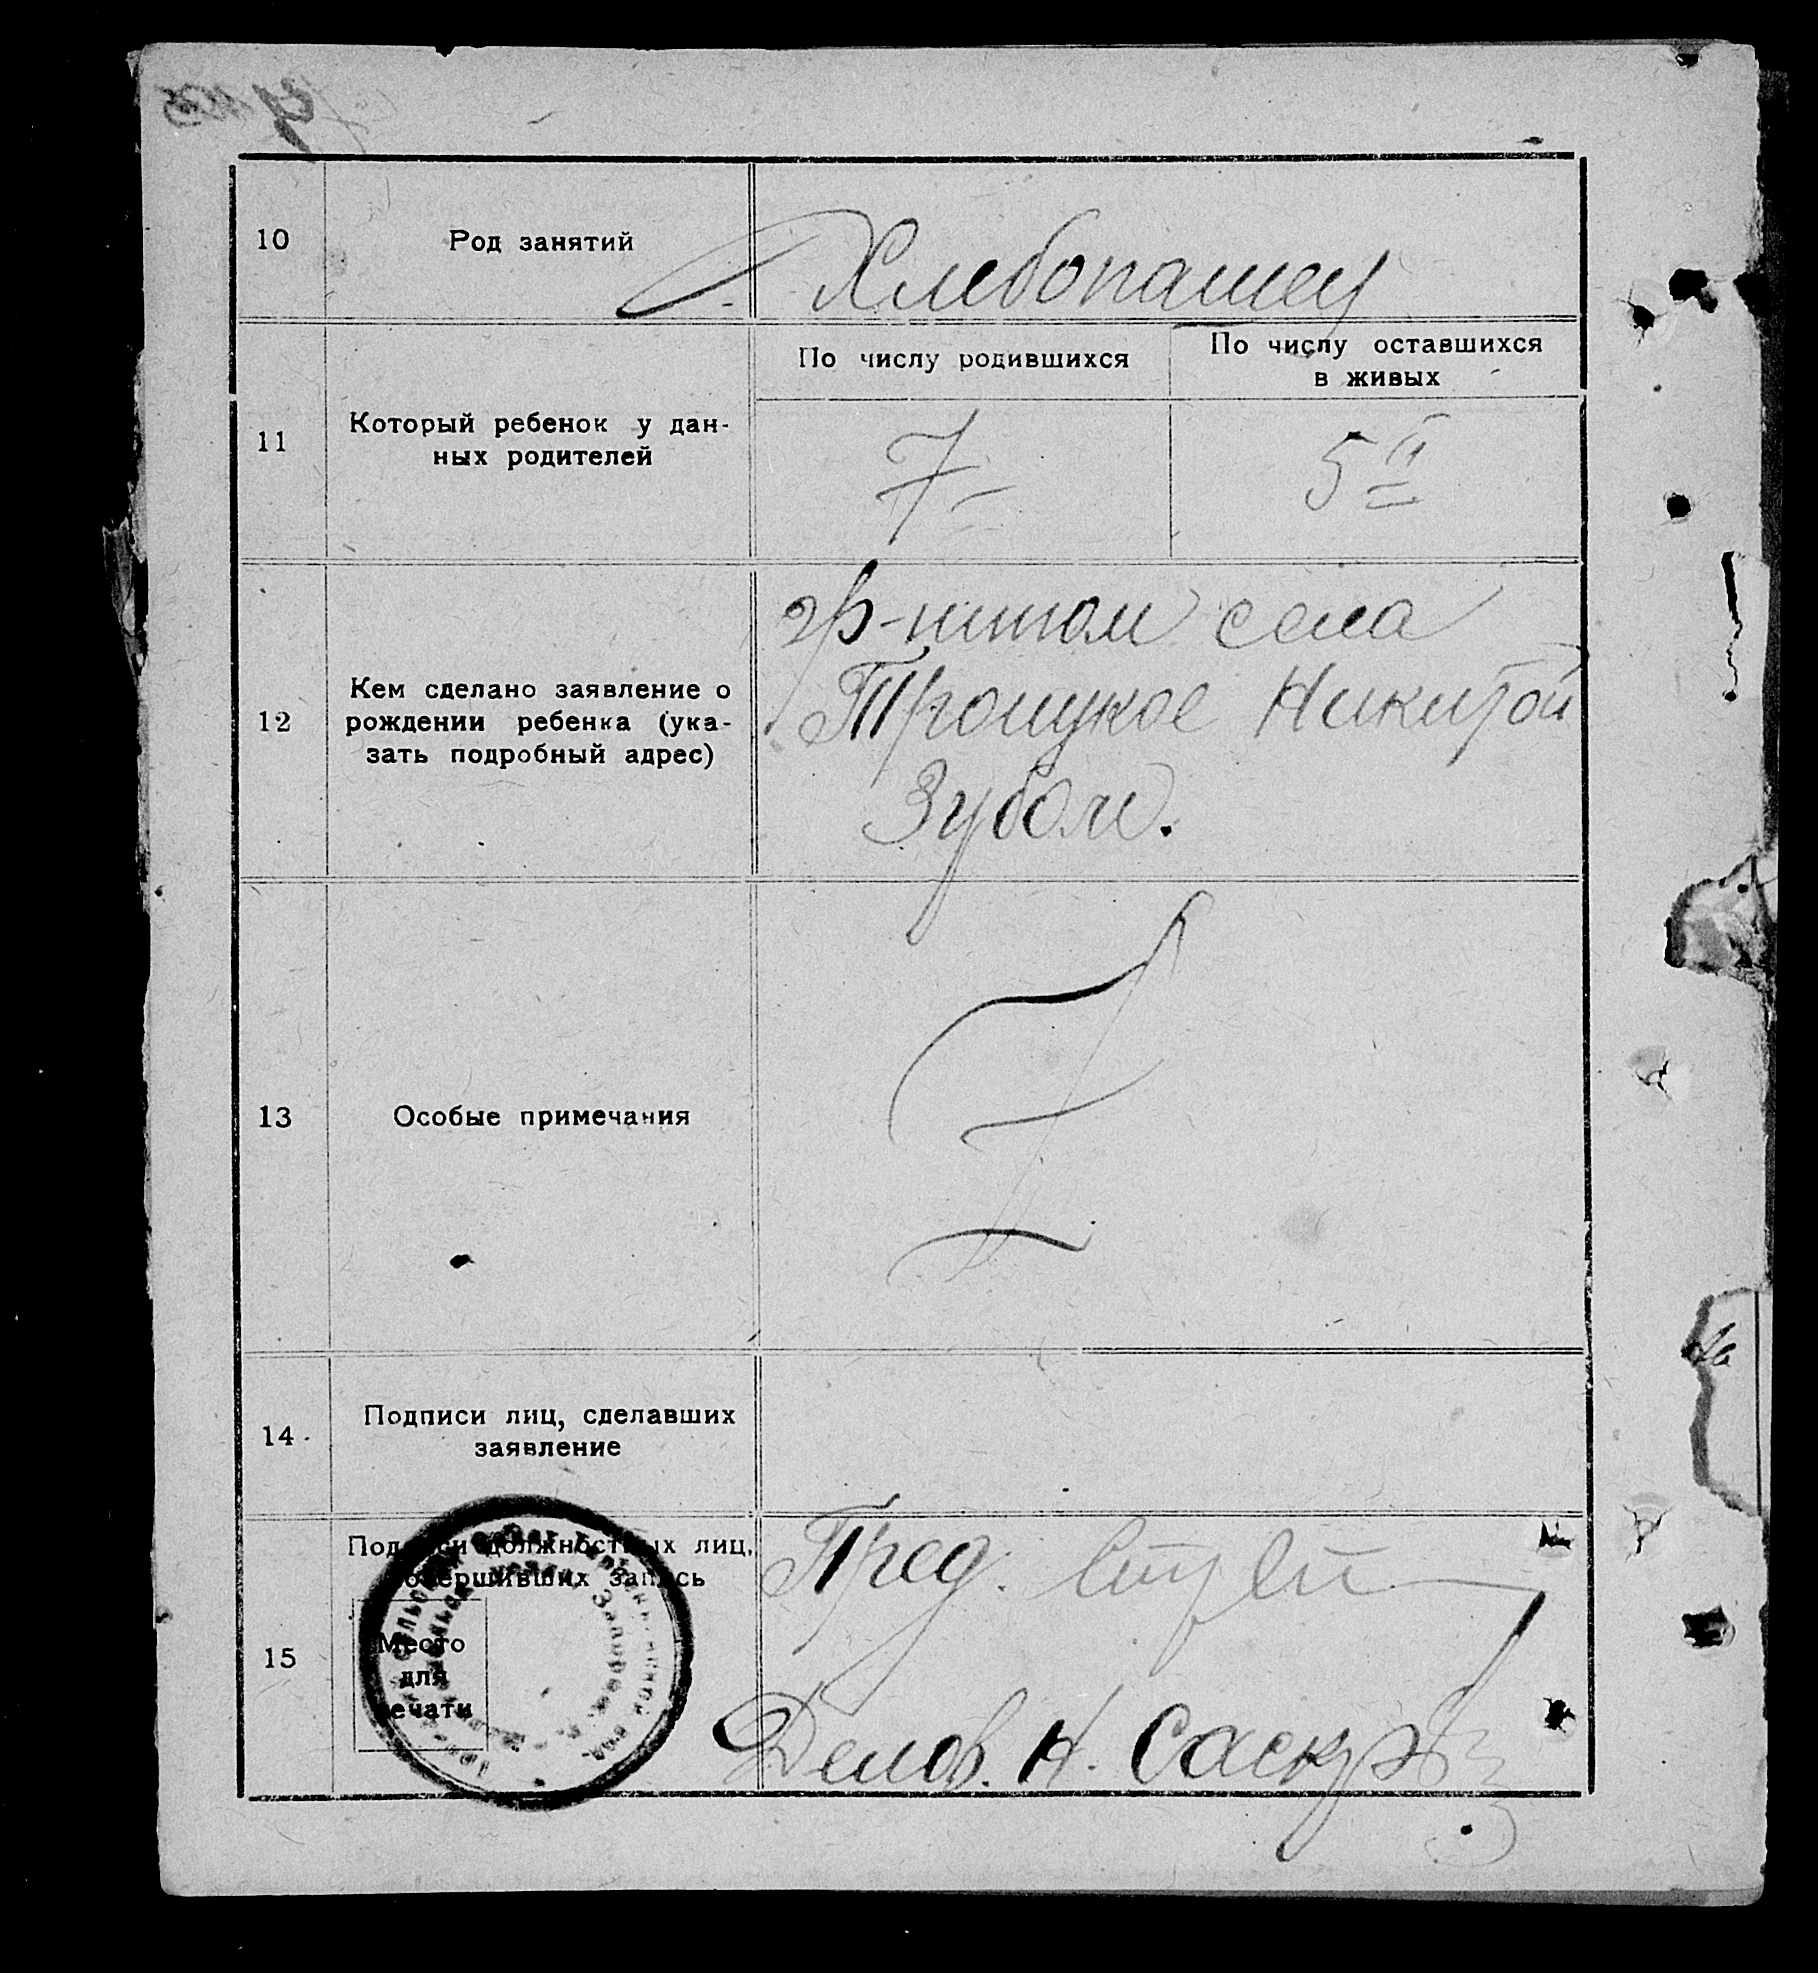 10
Род занятий
Хлебопашец
11
Который ребенок у дан-
ных родителей
По числу родившихся
7-
По числу оставшихся
в живых
5й
12
Кем сделано заявление о
рождении ребенка (ука-
зать подробный адрес)
гр-нином села
Троицкое Никитой
Зубом.
13
Особые примечания
14
Подписи лиц, сделавших
заявление
15
Подписи должностных лиц,
совершивших запись
Место
для
печати
Пред.
Делов. Н.